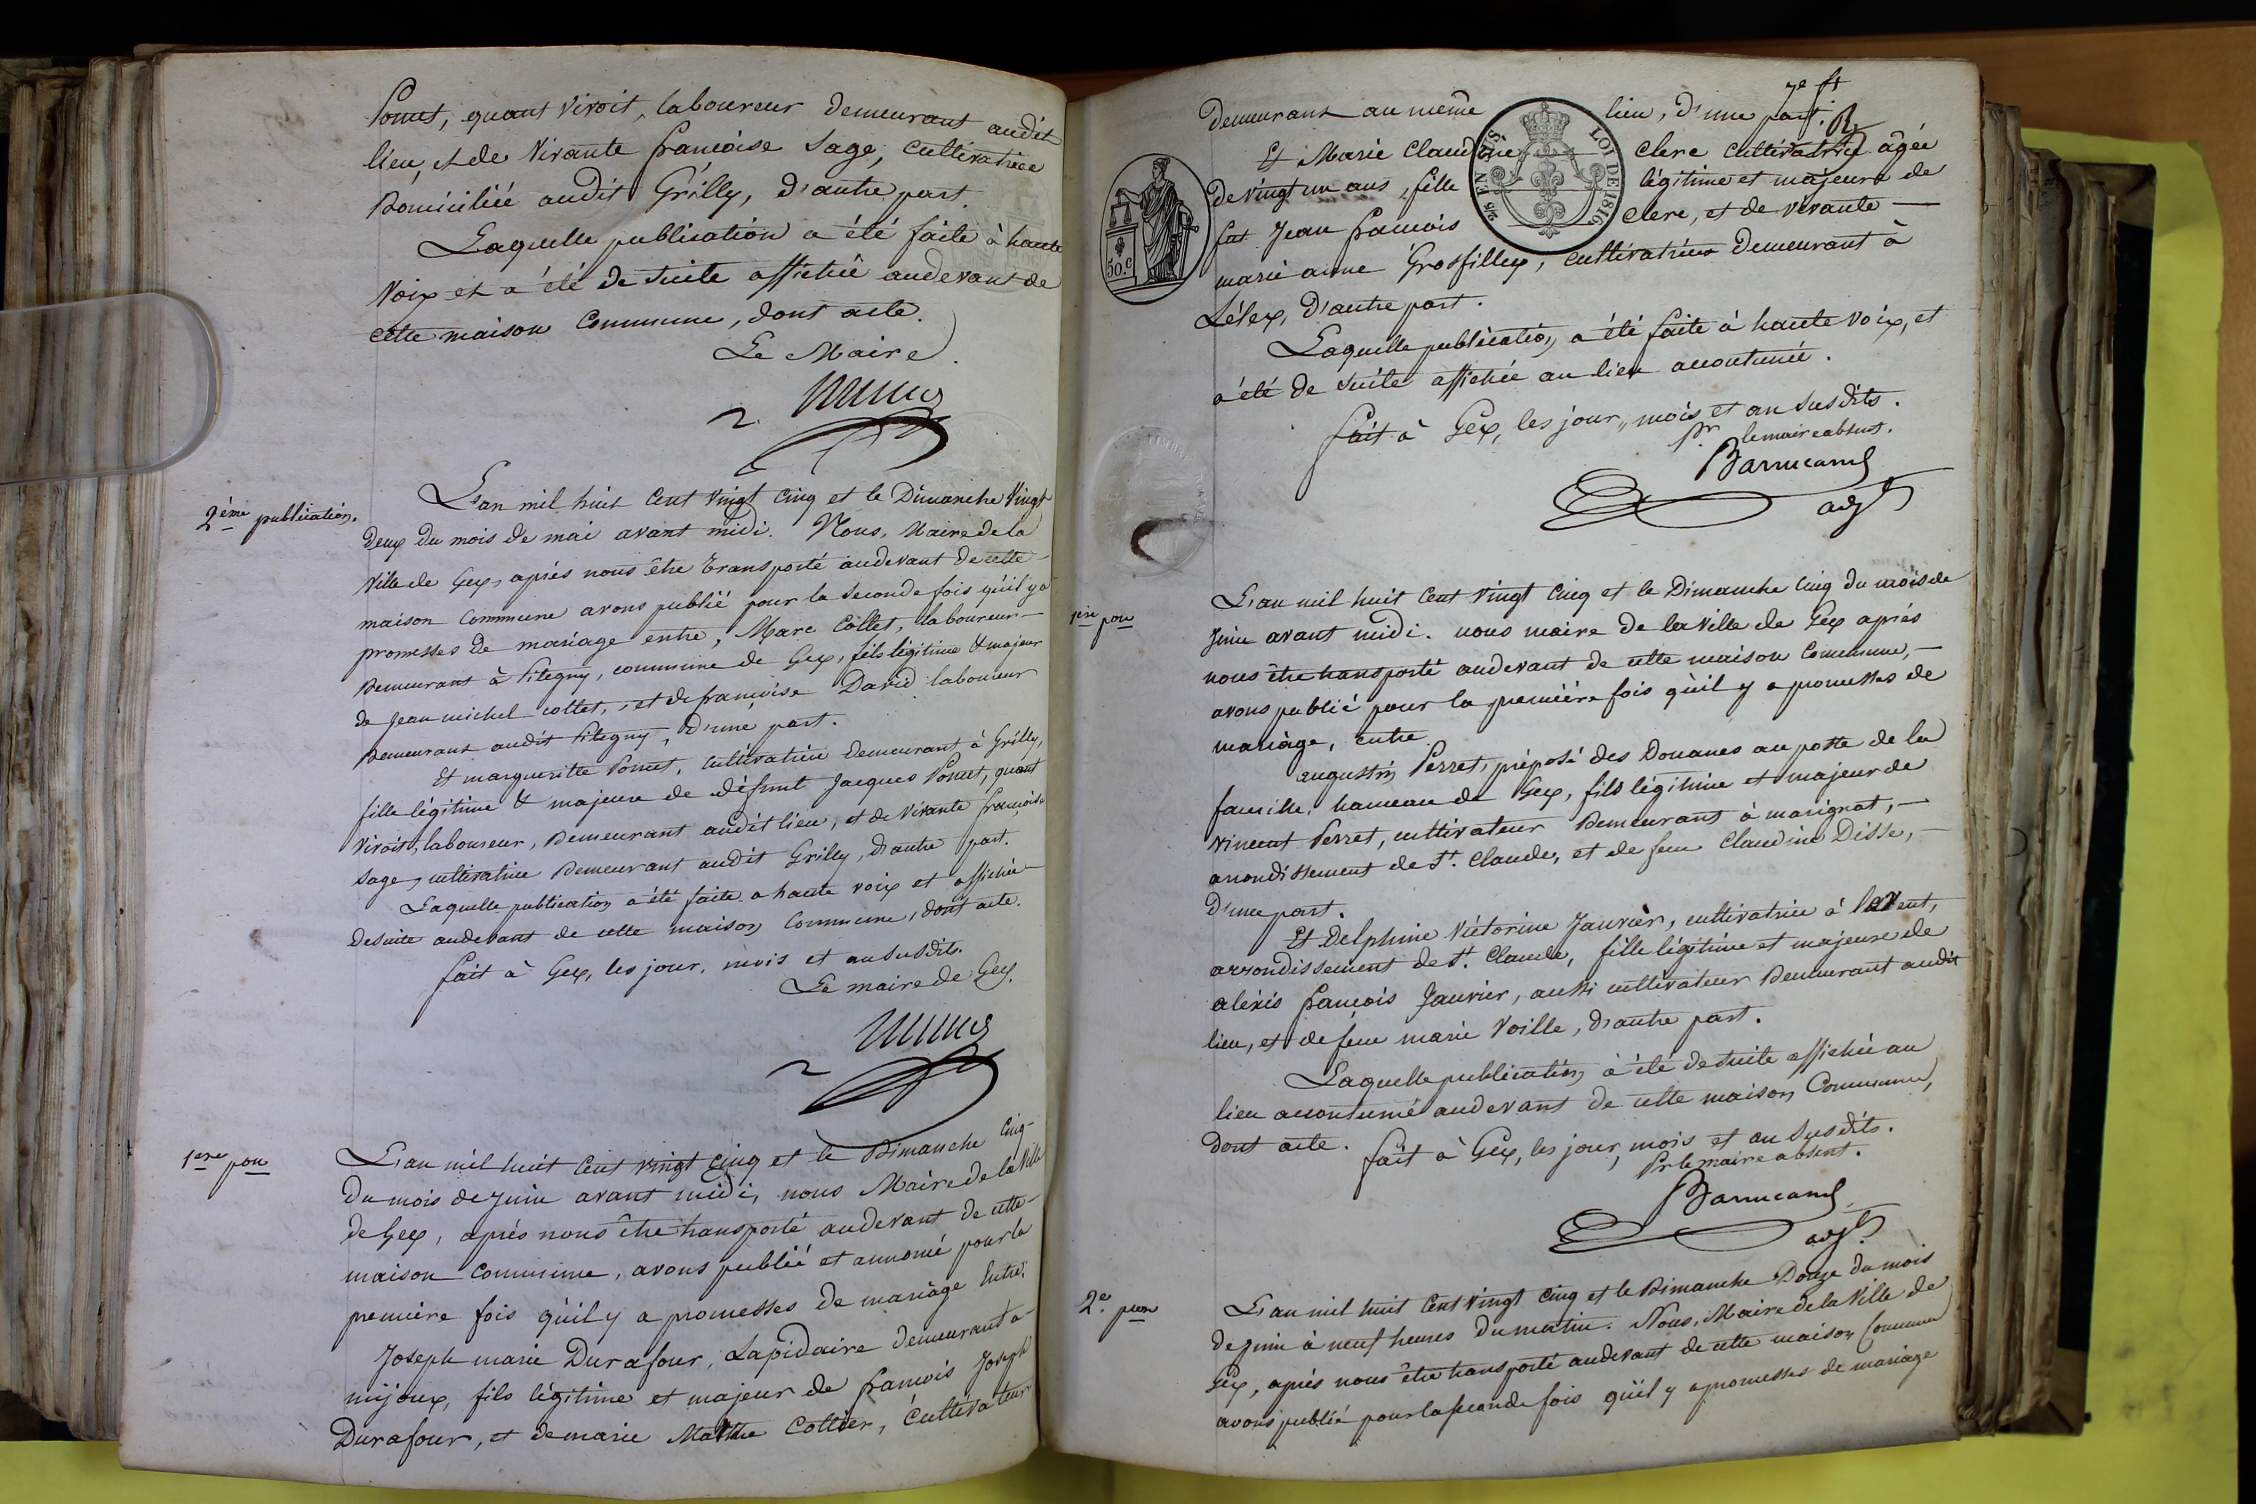 Pomet, quant vivoit, laboureur demeurant audit
lieu, et de vivante françoise Sage, cultivatrice
Domiciliée audit Grilly, d'autre part.
Laquelle publication a été faite à haute
voix et a été de suite affichée audevant de
cette maison commune, dont acte.
Le Maire
2ème publication.
L'an mil huit Cent vingt cinq et le Dimanche vingt
deux du mois de mai avant midi. Nous, Maire de la
ville de Gex, après nous être transporté audevant de cette
maison commune avons publié pour la seconde fois qu'il y a
promesses de mariage entre, Marc Collet, laboureur
Demeurant à Pitegny, commune de Gex, fils légitime & majeur
de Jean michel collet, et de françoise David laboureur
Demeurant audit Pitegny, d'une part.
Et marguerite Pomet, cultivatrice demeurant à Grilly,
fille légitime & majeure de défunt Jacques Pomet, quant
vivoit, laboureur, Demeurant audit lieu, et de vivante françoise
Sage, cultivatrice Demeurant audit Grilly, d'autre part.
Laquelle publication a été faite a haute voix et affichée
de suite audevant de cette maison Commune, dont acte.
fait à Gex, les jour, mois et an susdits.
Le maire de Gex.
1ere pon
L'an mil huit Cent vingt cinq et le Dimanche Cinq
du mois de Juin avant midi, nous Maire de la Ville
de Gex, après nous être transporté audevant de cette
maison commune, avons publié et annoncé pour la
première fois qu'il y a promesses de mariage Entre.
Joseph marie Durafour, Lapidaire demeurant a
mijoux, fils légitime et majeur de françois Joseph
Durafour, et de marie Marthe Cottier, Cultivateur
7e ft
demeurant au même lieu, d'une part.
Et Marie Claudine Clerc cultivatrice âgée
de vingt un ans, fille légitime et majeure de
fut Jean françois Clerc, et de vivante
marie anne Grosfilley, cultivatrice demeurant à
Lélex, d'autre part.
EN SUS
LOI DE 1816
50.c
Laquelle publication a été faite à haute voix, et
a été de suite affichée au lieu accoutumée.
fait à Gex, les jour, mois et an susdits.
Pr le maire absent.
Barrucand
adjt
1ere pon
L'an mil huit Cent vingt Cinq et le Dimanche Cinq du mois de
Juin avant midi. nous maire de la ville de Gex après
nous être transporté audevant de cette maison Commune,
avons publié pour la première fois qu'il y a promesses de
mariage, entre
augustin Perret, préposé des Douanes au poste de la
faucille, hameau de Gex, fils légitime et majeur de
vincent Perret, cultivateur Demeurant à marignat,
arrondissement de St. Claude, et de feue Claudine Disse,
d'une part.
Et Delphine Victorine Janvier, cultivatrice à Lavent,
arrondissement de St. Claude, fille légitime et majeure de
alexis françois Janvier, aussi cultivateur Demeurant audit
lieu, et de feue marie Voille, d'autre part.
Laquelle publication a été de suite affichée au
lieu accoutumé audevant de cette maison Commune,
dont acte. fait à Gex, les jour, mois et an susdits.
Pr le maire absent.
Barrucand
adjt
2e pon
L'an mil huit Cent vingt Cinq et le Dimanche Douze du mois
de Juin à neuf heures du matin. Nous, Maire de la Ville de
Gex, après nous être transporté audevant de cette maison Commune
avons publié pour la seconde fois qu'il y a promesses de mariage